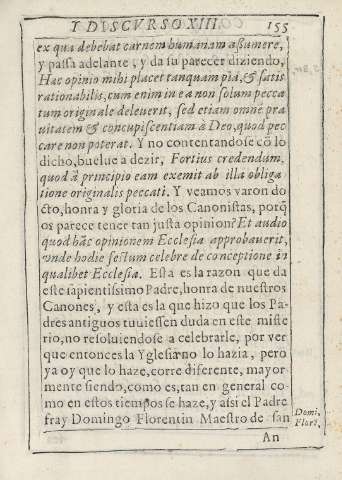 Y DISCVRSO XIII. 155
ex qua debebat carnem humanam aſſumere,
y paſſa adelante, y da ſu parecer diziendo,
Hac opinio mihi placet tanquam pia, & ſatis
rationabilis, cum enim in ea non ſolum pecca
tum originale deleuerit, ſed etiam omne pra
uitatem & concupiſcentiam à Deo, quod pec
care non poterat. Y no contentandoſe cõ lo
dicho, buelue a dezir, Fortius credendum,
quod à principio eam exemit ab illa obliga
tione originalis peccati. Y veamos varon do
cto, honra y gloria de los Canoniſtas, porq̃
os parece tener tan juſta opinion? Et audio
quod hãc opinionem Eccleſia approbauerit,
vnde hodie feſtum celebre de conceptione in
qualibet Eccleſia. Eſta es la razon que da
eſte ſapientiſsimo Padre, honra de nueſtros
Canones, y eſta es la que hizo que los Pa-
dres antiguos tuuieſſen duda en eſte miſte
rio, no reſoluiendoſe a celebrarle, por ver
que entonces la Ygleſia no lo hazia, pero
ya oy que lo haze, corre diferente, mayor
mente ſiendo, como es, tan en general co-
mo en eſtos tiempos ſe haze, y aſsi el Padre
fray Domingo Florentin Maeſtro de ſan
Domi,
Flor?,
An